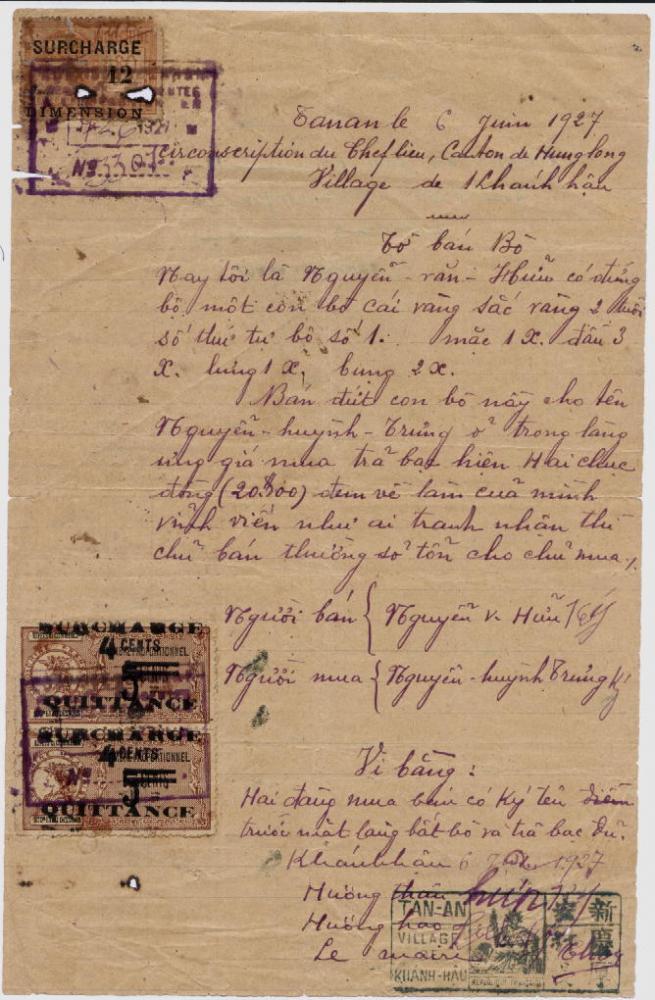 SURCHARGE
12
DIMENSION
1927
Nº 3307
Tanan le 6 Juin 1927
Circonscription du Chef lieu, Canton de Hunglong
Village de Khanh hậu
Tờ bán Bò
Nay tôi là Nguyễn-văn-Hữu có đứng
bộ một con bò cái vàng sắc vàng 2 tuổi
số thứ tự bộ số 1. mặc 1 X. đầu 3
X. lưng 1 X, bụng 2 X.
Bán đứt con bò nầy cho tên
Nguyễn-huỳnh-Trung ở trong làng
ưng giá mua trả bạc hiện Hai chục
đồng (20$00) đem về làm của mình
vĩnh viễn như ai tranh nhận thì
chủ bán thường sở tổn cho chủ mua./.
SURCHARGE
4 CENTS
5
QUITTANCE
SURCHARGE
4 CENTS
5
QUITTANCE
Nº
Người bán { Nguyễn v. Hữu Ký
Người mua { Nguyễn-huỳnh Trung Ký
Vi bằng:
Hai đàng mua bán có Ký tên điểm
trước mặt làng bắt bò và trả bạc đủ.
Khánhhậu 6 1927
Hương thân
Hương hào
Le maire
TAN-AN
VILLAGE
KHÁNH-HẬU
新
安
慶